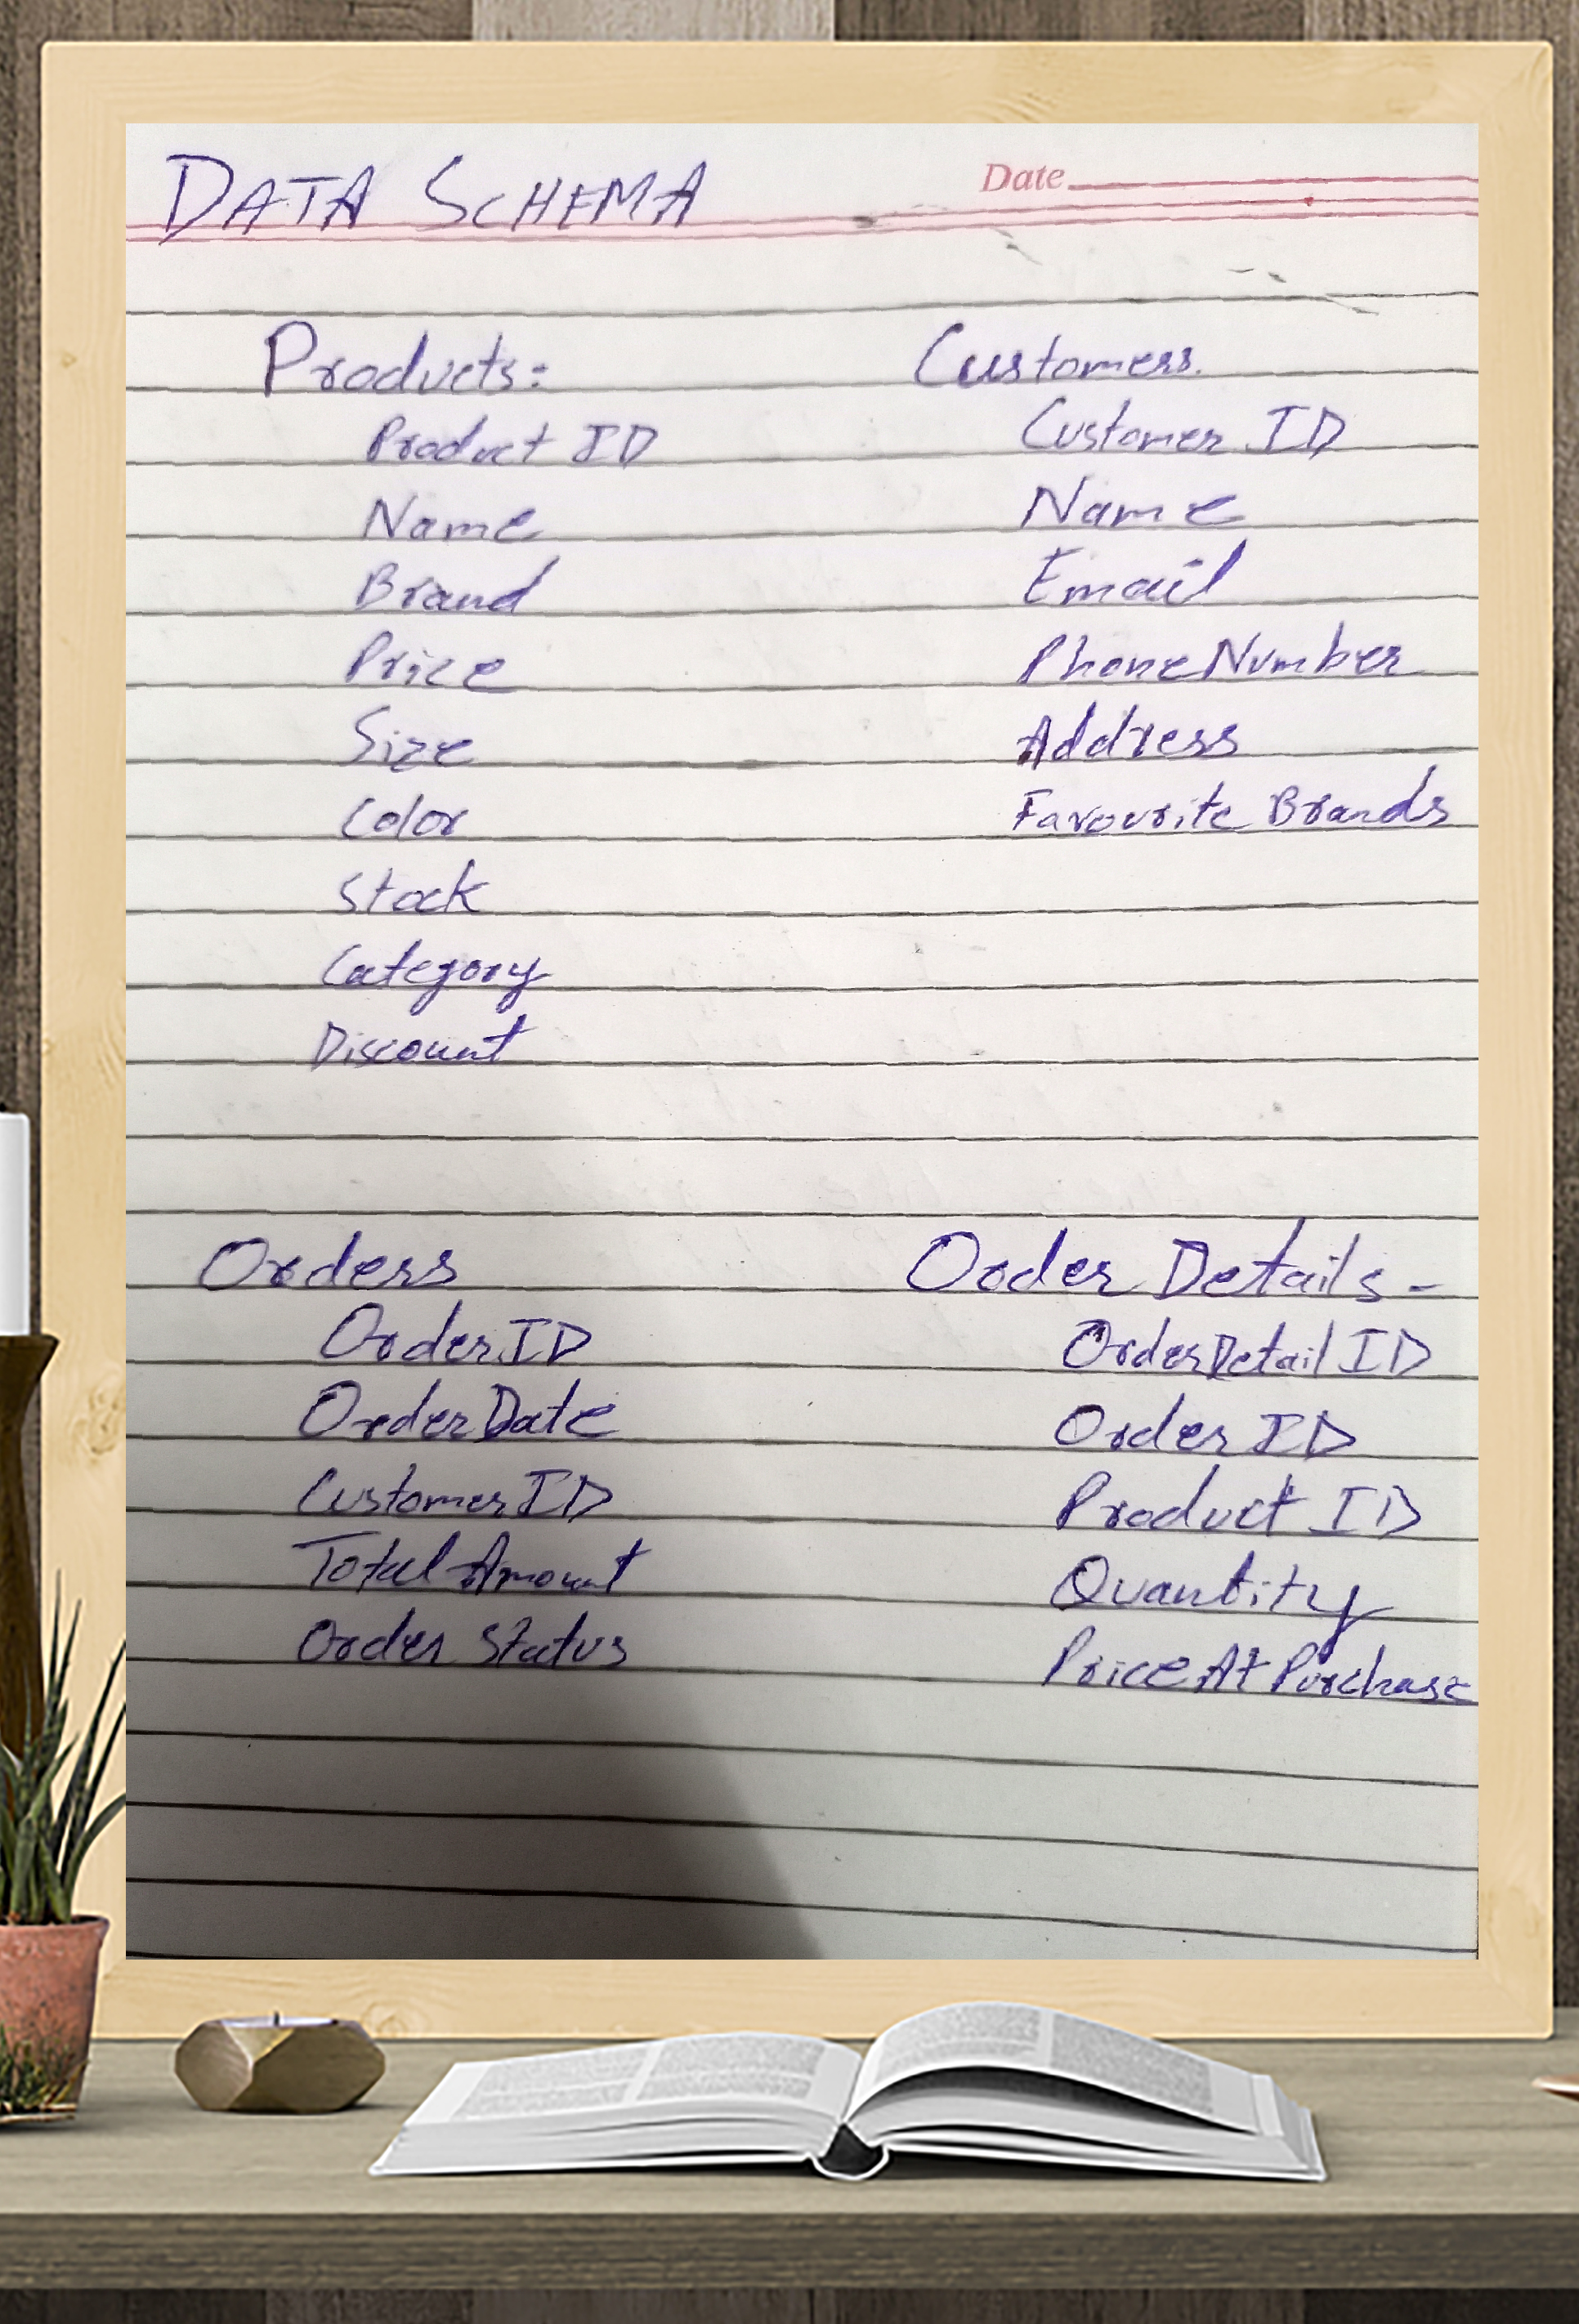 DATA SCHEMA
Date
Products:
Product ID
Name
Brand
Price
Size
Color
Stock
Category
Discount
Customers.
Customer ID
Name
Email
PhoneNumber
Address
Favourite Brands
Orders
OrderID
OrderDate
CustomerID
Total Amount
Order Status
Order Details-
OrderDetail ID
Order ID
Product ID
Quantity
PriceAtPurchase